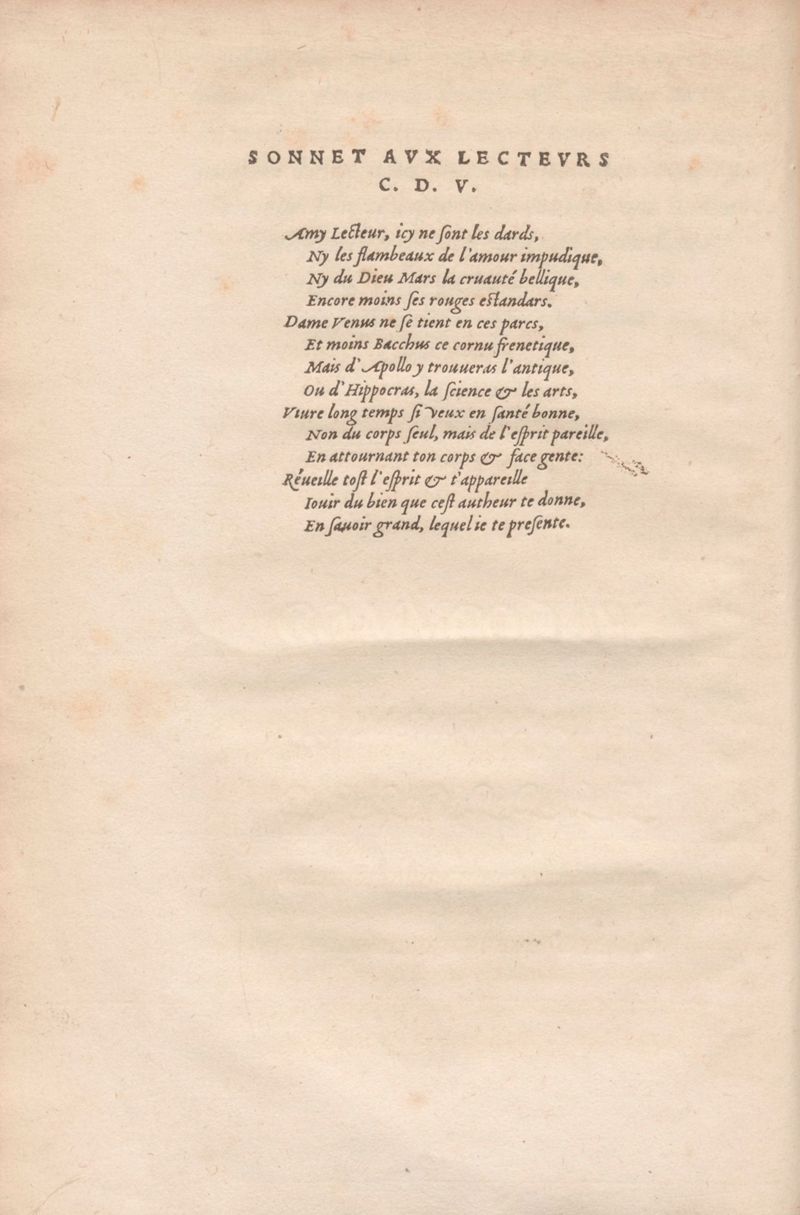 SONNET AVX LECTEVRS
C. D. V.
Amy Lecteur, icy ne ſont les dards,
Ny les flambeaux de l'amour impudique,
Ny du Dieu Mars la cruauté bellique,
Encore moins ſes rouges eſtandars.
Dame Venus ne ſe tient en ces parcs,
Et moins Bacchus ce cornu frenetique,
Mais d'Apollo y trouueras l'antique,
Ou d'Hippocras, la ſcience & les arts,
Viure long temps ſi veux en ſanté bonne,
Non du corps ſeul, mais de l'eſprit pareille,
En attournant ton corps & face gente:
Réueille toſt l'eſprit & t'appareille
Iouir du bien que ceſt autheur te donne,
En ſauoir grand, lequel ie te preſente.